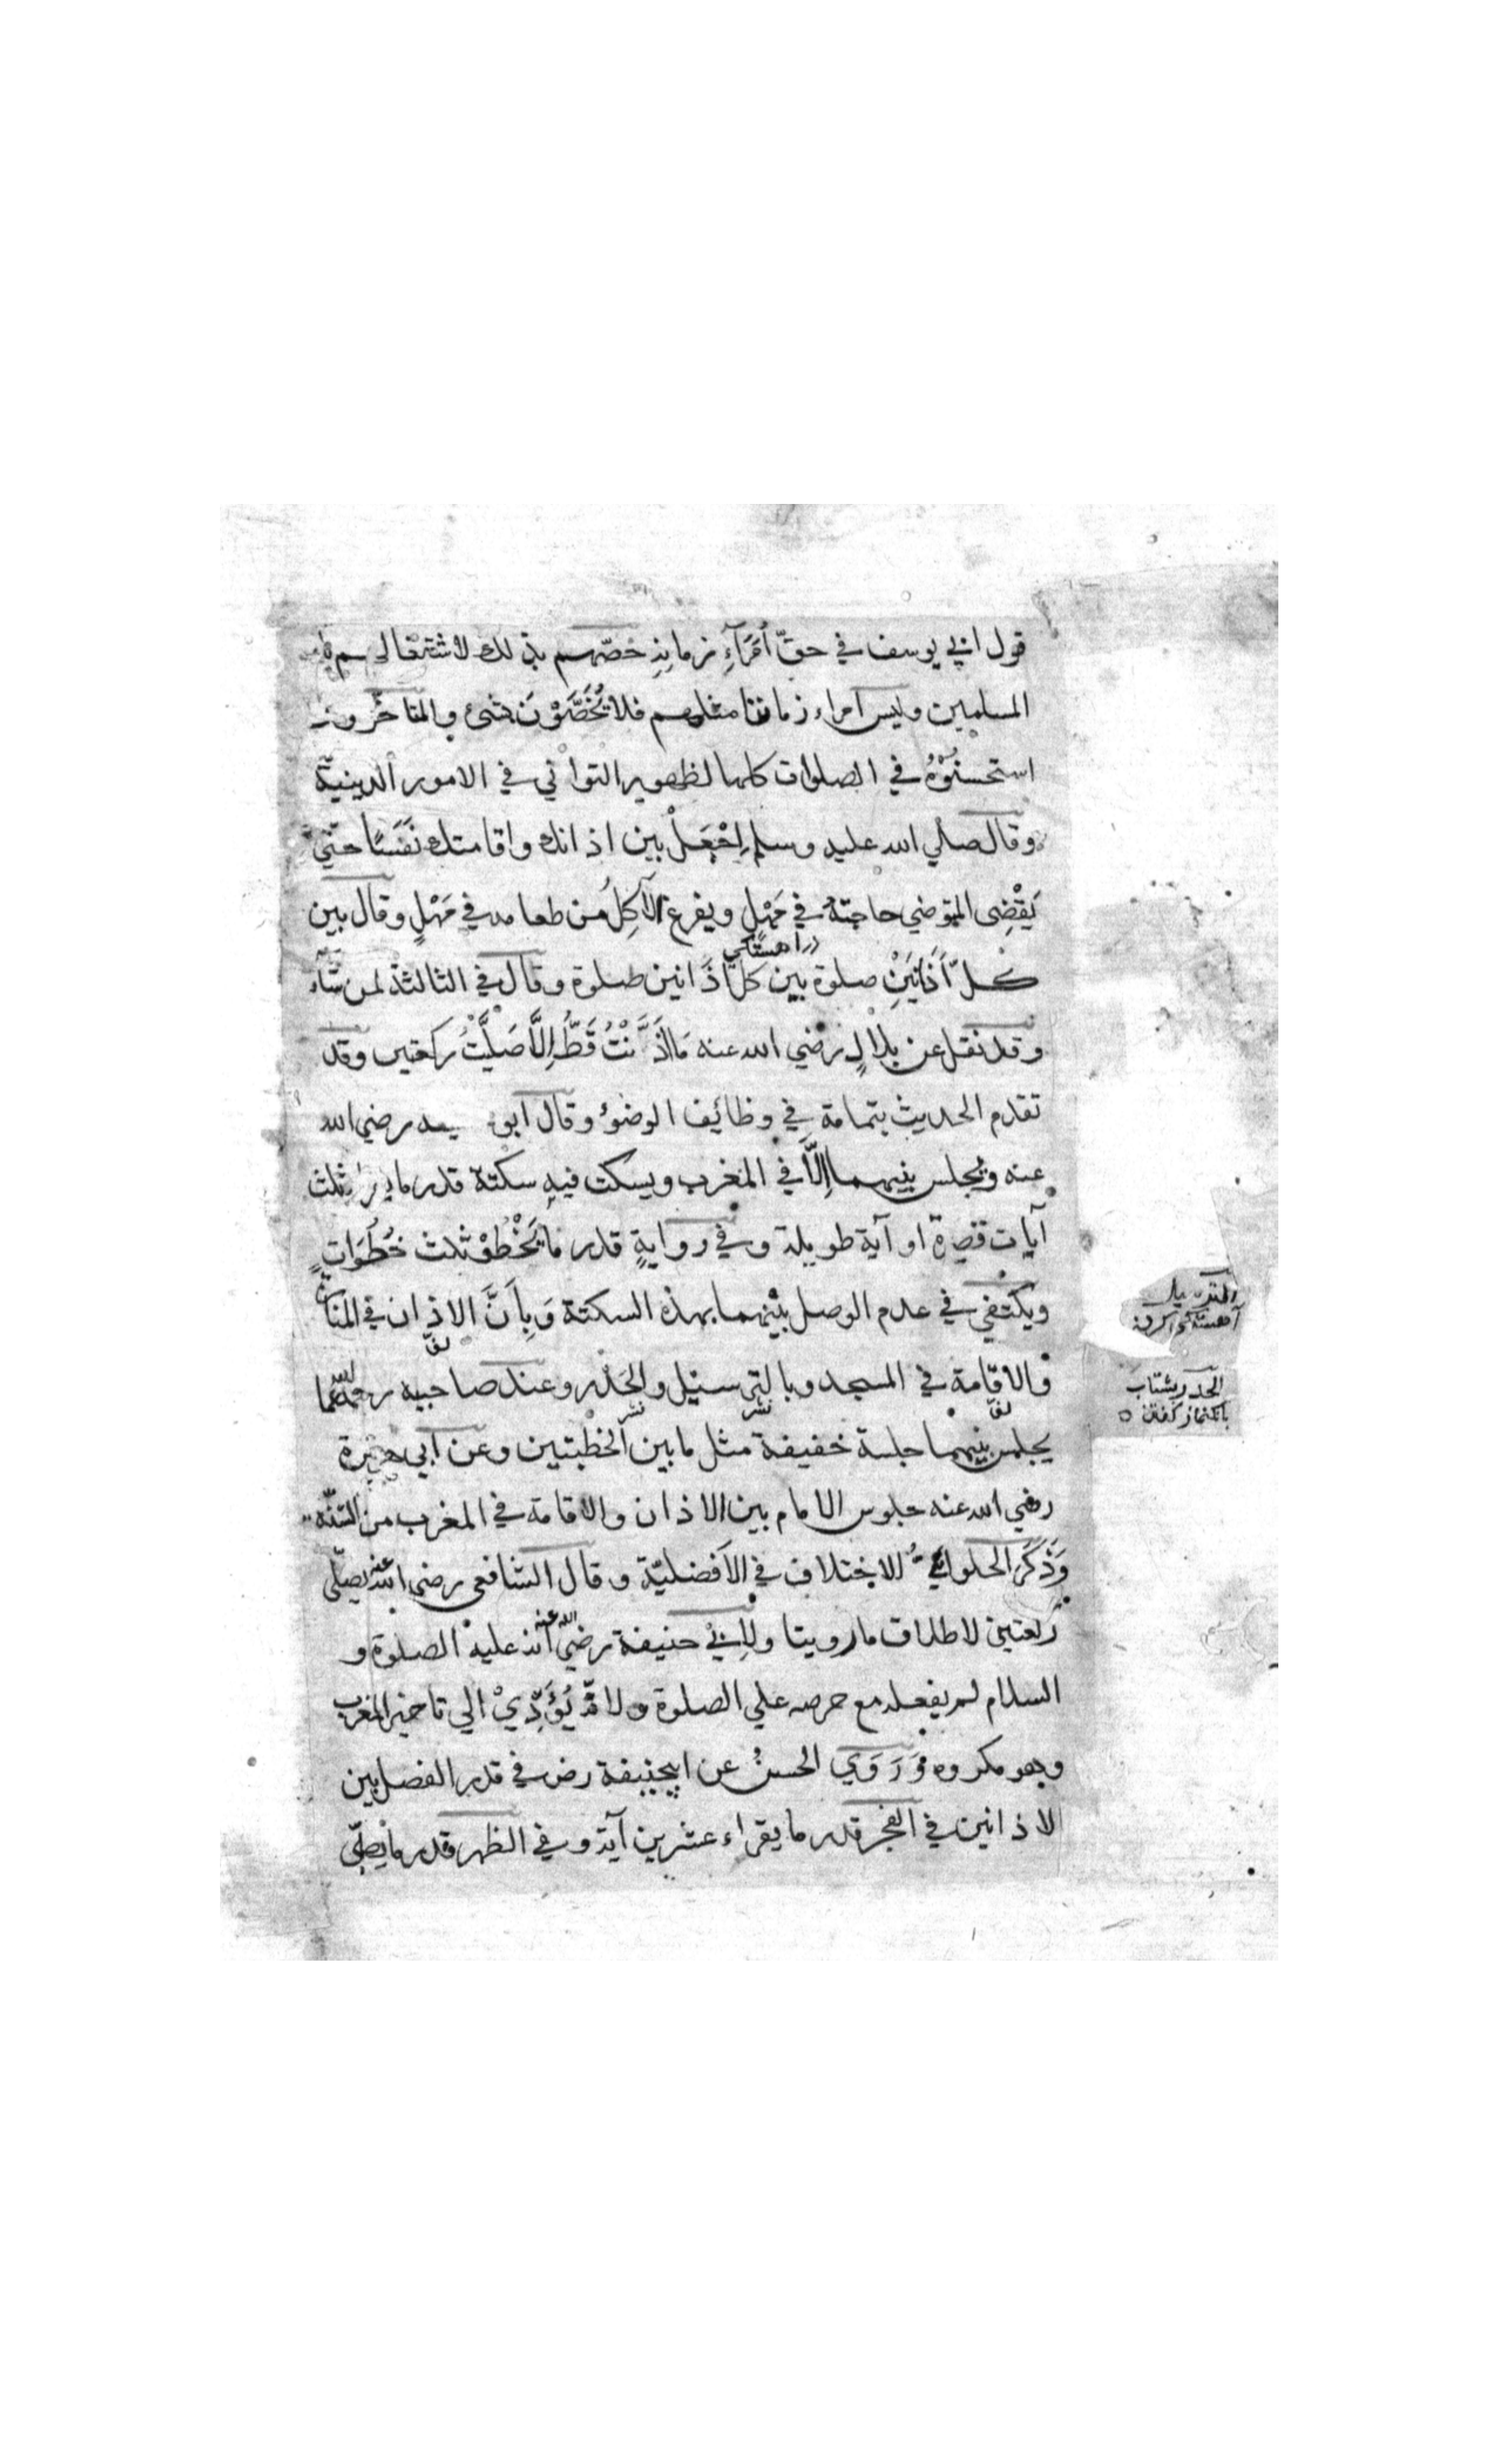 قول ابي يوسف في حقّ أُمَرَآءِ زمانِهِ خصّهم بذلك لاشتغالهم
المسلمين وليس امراء زماننا مثلهم فلا يُخَصَّوْنَ بشئ والمتاخّرون
استحسنُوْهُ في الصلوات كلها لظهور التواني في الامور الدينيّة
وقال صلي الله عليه وسلم اِجْعَلْ بين اذانك واقامتك نَفَسًا حتّي
يَقْضِى المتوضي حاجتهُ في مَهْلٍ ويفرغ الآكِلُ من طعامه في مَهْلٍ وقال بين
در اهستگى
كلّ أَذَانَيْنِ صلوة بين كلّ أذانين صلوة وقال في الثالثة لمن شآء
وقد نقل عن بلالٍ رضي الله عنه مَا أَذَّنْتُ قَطُّ إِلَّا صَلَّيْتُ ركعتين وقد
تقدم الحديث بتمامة في وظائف الوضوء وقال ابو رضي الله
عنه ويجلس بينهما إلَّا في المغرب ويسكت فيهِ سكتة قدر ما ثلث
آيات قصيرة او آية طويلة وفي روايةٍ قدر ما يَخْطُوْ ثلث خُطُوَاتٍ
ويكتفي في عدم الوصل بينهما بهذه السكتة وَبِأَنَّ الاذان في المنارة
والاقامة في المسجد وبالترسيل والحَدْر وعند صاحبيه رحمهما الله
يجلس بينهما جلسة خفيفة مثل ما بين الخطبتين وعن ابي هريرة
رضي الله عنه جلوس الامام بين الاذان والاقامة في المغرب من السّنّة
وَذَكَرَ الحلوائيُّ الاختلاف في الأفضليّة وقال الشافعى رضى الله عنه يصلّى
ركعتين لاطلاق ما روينا ولِأَبِيْ حنيفة رضي الله عنه أنه عليه الصلوة و
السلام لم يفعله مع حرصه علي الصلوة ولانّه يُؤَدِّيْ الي تاخير المغرب
وهو مكروه وَرَوَي الحسنُ عن ابيحنيفة رض في قدر الفصل بين
الاذانين في الفجر قدر ما يقراء عشرين آية وفي الظهر قدر ما يصلّى
الترسيل
آهستگى كردن
الحدر بشتاب
بانگ نماز گفتن